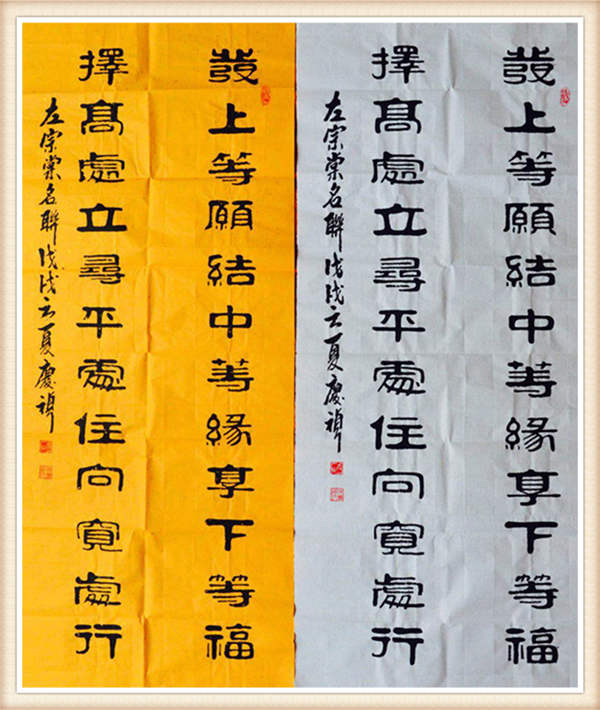 發上等願結中等緣享下等福
擇髙處立尋平處住向寬處行
左宗棠名聯戊戌之夏慶
發上等願結中等緣享下等福
擇髙處立尋平處住向寬處行
左宗棠名聯戊戌之夏慶